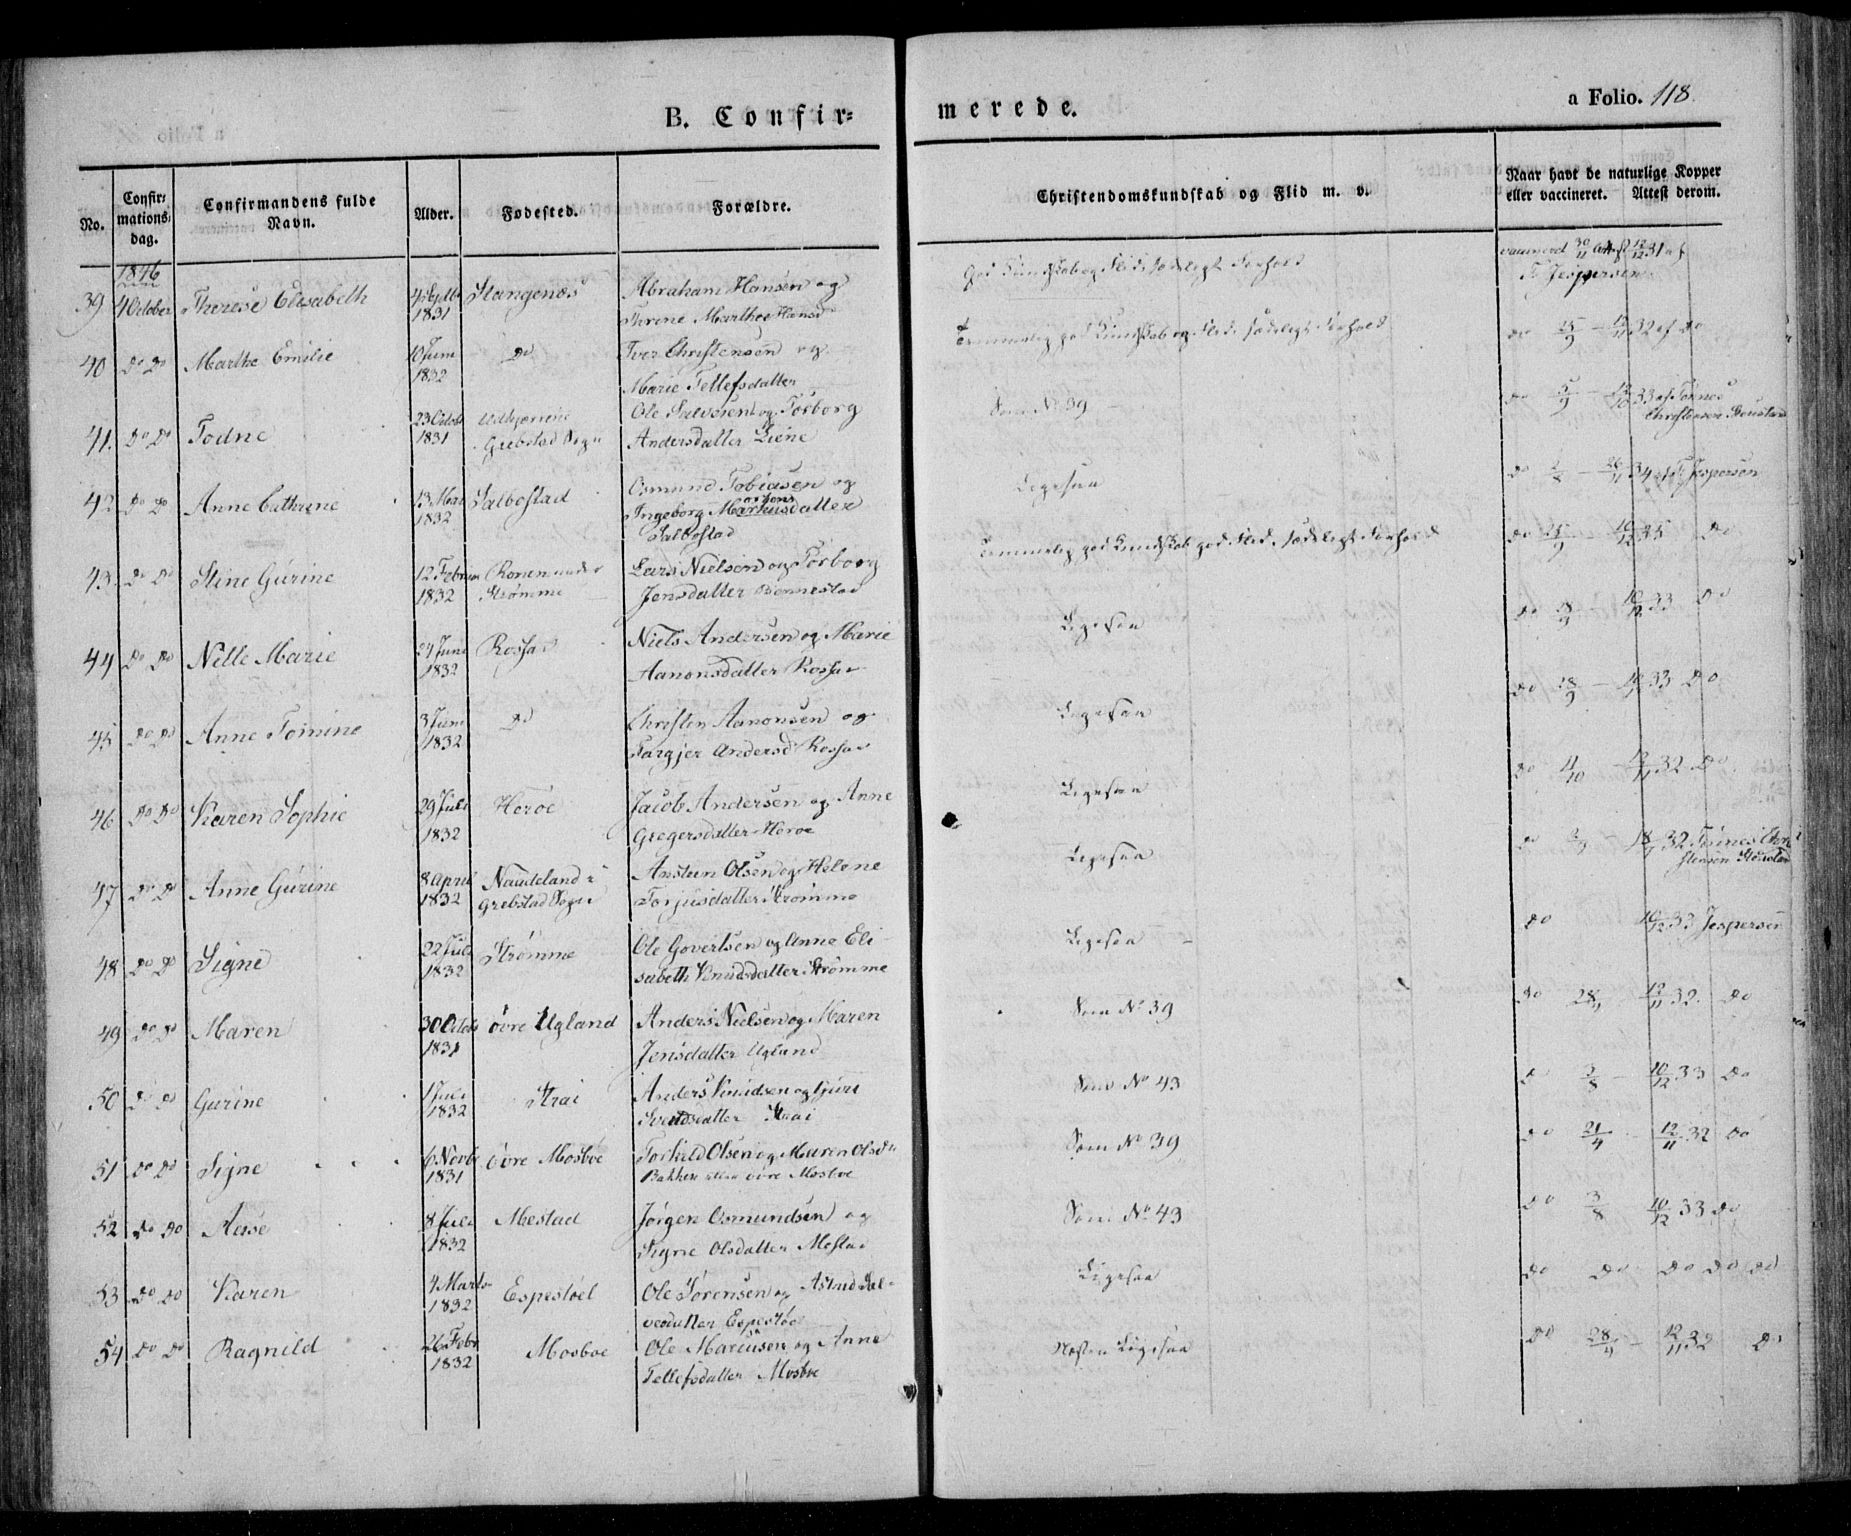 B. Confir=
merede.
a Folio. 118.
No.
Confir-
mations-
dag.
Confirmandens fulde
Navn.
Alder.
Fødested.
Forældre.
Christendomskundskab og Flid m. v.
Naar havt de naturlige Kopper
eller vaccineret. Attest derom.
1846
39 4 October Therese Elisabeth 4 Septbr 1831 Stangenæs Abraham Hansen og
Thrine Marthe Hansd
God Kundskab og Flid, sædeligt Forhold
vaccinered 30/11 Att. 12/12 31 af
F. Jespersen
40 Do Do Marthe Emilie 10 Juni 1832 Do Iver Christensen og
Marie Tellefsdatter
Temmelig god Kundskab og Flid, sædeligt Forhold
Do 25/9 – 12/11 32 af Do
41. Do Do Todne 23 Octob 1831 Grebstad Sogn Ole Salvesen og Torborg
Andersdatter Liene
Som No 39
Do 5/9 – 33 af Tønnes
Christensen
42 Do Do Anne Cathrine 13 Mai 1832 Salbostad Osmund Tobiasen og
Ingeborg Markusdatter
Salbostad
Ligesaa
Do – 26/11 34 af F. Jespersen
43. Do Do Stine Gurine 12 Februar 1832 Ronen under
Strømme
Lars Nielsen og Torborg
Jensdatter Bennestad
Temmelig god Kundskab god Flid, sædeligt Forhold
Do 25/9 – 10/12 35 Do
44 Do Do Nille Marie 24 Juni 1832 Rossa Niels Andersen og Marie
Aanonsdatter Rossa
Ligesaa
Do 28/9 – 10/12 33 Do
45 Do Do Anne Tomine 3 Juni 1832 Do Christen Aanonsen og
Targjer Andersd Rossa
Ligesaa
Do 28/9 – 33 Do
46 Do Do Karen Sophie 29 Juli 1832 Herøe Jacob Andersen og Anne
Gregersdatter Herøe
Ligesaa
Do 4/10 – 12/11 32 Do
47 Do Do Anne Gurine 8 April 1832 Naudeland i
Grebstad Sogn
Ansteen Olsen og Helene
Torjusdatter Strømme
Ligesaa
Do – 32 Tønnes Chri
stensen
48 Do Do Signe 22 Juli 1832 Strømme Ole Govertsen og Anne Eli-
sabeth Knudsdatter Strømme
Ligesaa –
Do 10/12 33 Jespersen
49 Do Do Maren 30 Octob 1831 øvre Ugland Anders Nielsen og Maren
Jensdatter Ugland
Som No 39
Do 28/9 – 12/11 32. Do
50 Do Do Gurine 1 Juli 1832 Strai Anders Knudsen og Guri
Svendsdatter Strai
Som No 43
Do 3/8 – 10/12 33 Do
51 Do Do Signe 6 Novbr 1831 øvre Mosbøe Torkild Olsen og Maren Olsdtr
Bakken eller øvre Mosbøe
Som No 39
Do 21/4 – 12/11 32 Do
52 Do Do Aase 8 Juli 1832 Mestad Jørgen Osmundsen og
Signe Olsdatter Mestad
Som No 43
Do 3/8 10/12 33 Do
53 Do Do Karen 4 Marts 1832 Espestøel Ole Sørensen og Astrid Sal-
vesdatter Espestøe
Ligesaa
Do Do Do Do Do
54 Do Do Ragnild 26 Febr 1832 Mosbøe Ole Marcusen og Anne
Tellefsdatter Mosbøe
Næsten Ligesaa
Do 28/9 – 12/11 32 Do